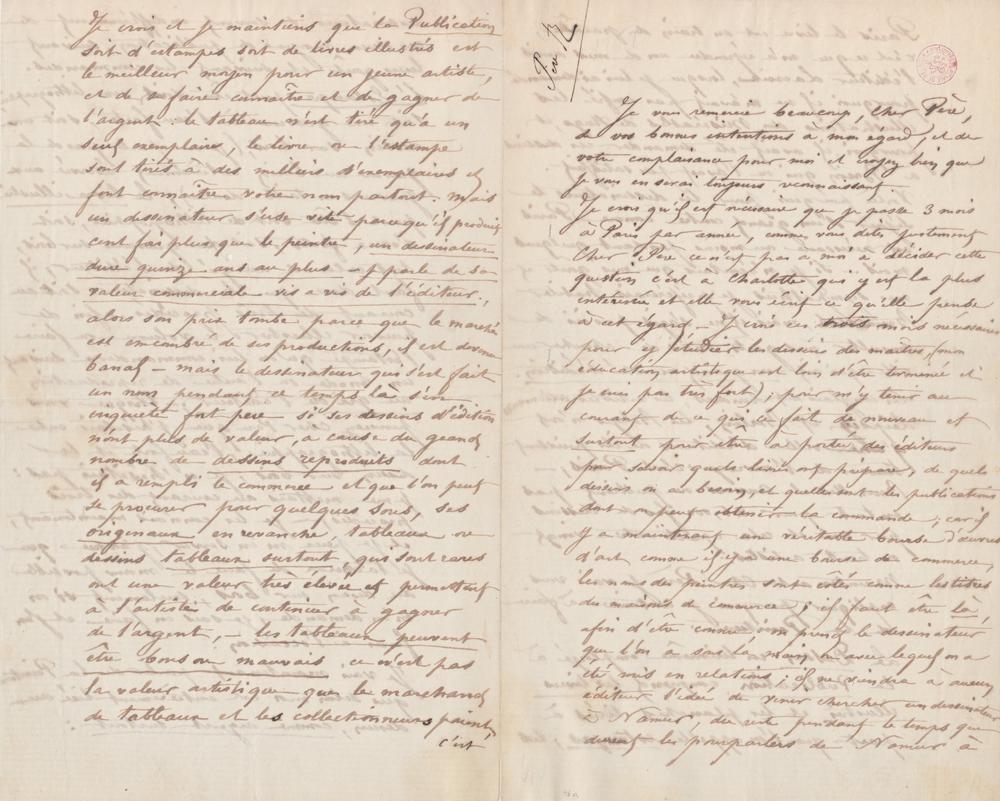 Je crois et je maintiens que la Publication
soit d'estampes soit de livres illustrés est
le meilleur moyen pour un jeune artiste,
et de se faire connaître et de gagner de
l'argent : le tableau n'est tiré qu'à un
seul exemplaire, le livre ou l'estampe
sont tirés à des milliers d'exemplaires et
font connaître votre nom partout. Mais
un dessinateur s'use vite parce qu'il produit
cent fois plus que le peintre, un dessinateur
dure quinze ans au plus – je parle de sa
valeur commerciale vis a vis de l'éditeur,
alors son prix tombe parce que le marché
est encombré de ses productions, il est devenu
banal – mais le dessinateur qui s'est fait
un nom pendant ce temps là s'en
inquiète fort peu si ses dessins d'édition
n'ont plus de valeur, a cause du grand
nombre de dessins reproduits dont
il a rempli le commerce et que l'on peut
se procurer pour quelques sous, ses
originaux en revanche tableaux ou
dessins tableaux surtout qui sont rares
ont une valeur très élevée et permettent
à l'artiste de continuer à gagner
de l'argent, – les tableaux peuvent
être bons ou mauvais, ce n'est pas
la valeur artistique que le marchand
de tableaux et les collectionneurs paient,
c'est
Je vous remercie beaucoup, Cher Père,
de vos bonnes intentions à mon égard, et de
votre complaisance pour moi et croyez bien que
je vous en serai toujours reconnaissant.
Je crois qu'il est nécessaire que je passe 3 mois
à Paris par année, comme vous dites justement
Cher Père ce n'est pas à moi à décider cette
question c'est à Charlotte qui y est la plus
intéressée et elle vous écrit ce qu'elle pense
à cet égard – Je crois ces trois mois nécessaires
pour y étudier les dessins des maîtres, (mon
éducation artistique est loin d'être terminée et
je suis pas très fort) ; pour m'y tenir au
courant de ce qui se fait de nouveau et
surtout pour être à portée des éditeurs
pour savoir quels livres ont préparé, de quels
dessins on a besoin, et quelles sont les publications
dont on peut obtenir la commande ; car il
y a maintenant une véritable bourse d'œuvres
d'art comme il y a une bourse de commerce,
les noms des peintres sont cotés comme les titres
des maisons de commerce ; il faut être là,
afin d'être connu, on prend le dessinateur
que l'on a sous la main ou avec lequel on a
été mis en relations ; il ne viendra à aucun
éditeur l'idée de venir chercher un dessinateur
à Namur, du reste pendant le temps que
durent les pourparlers de Namur à